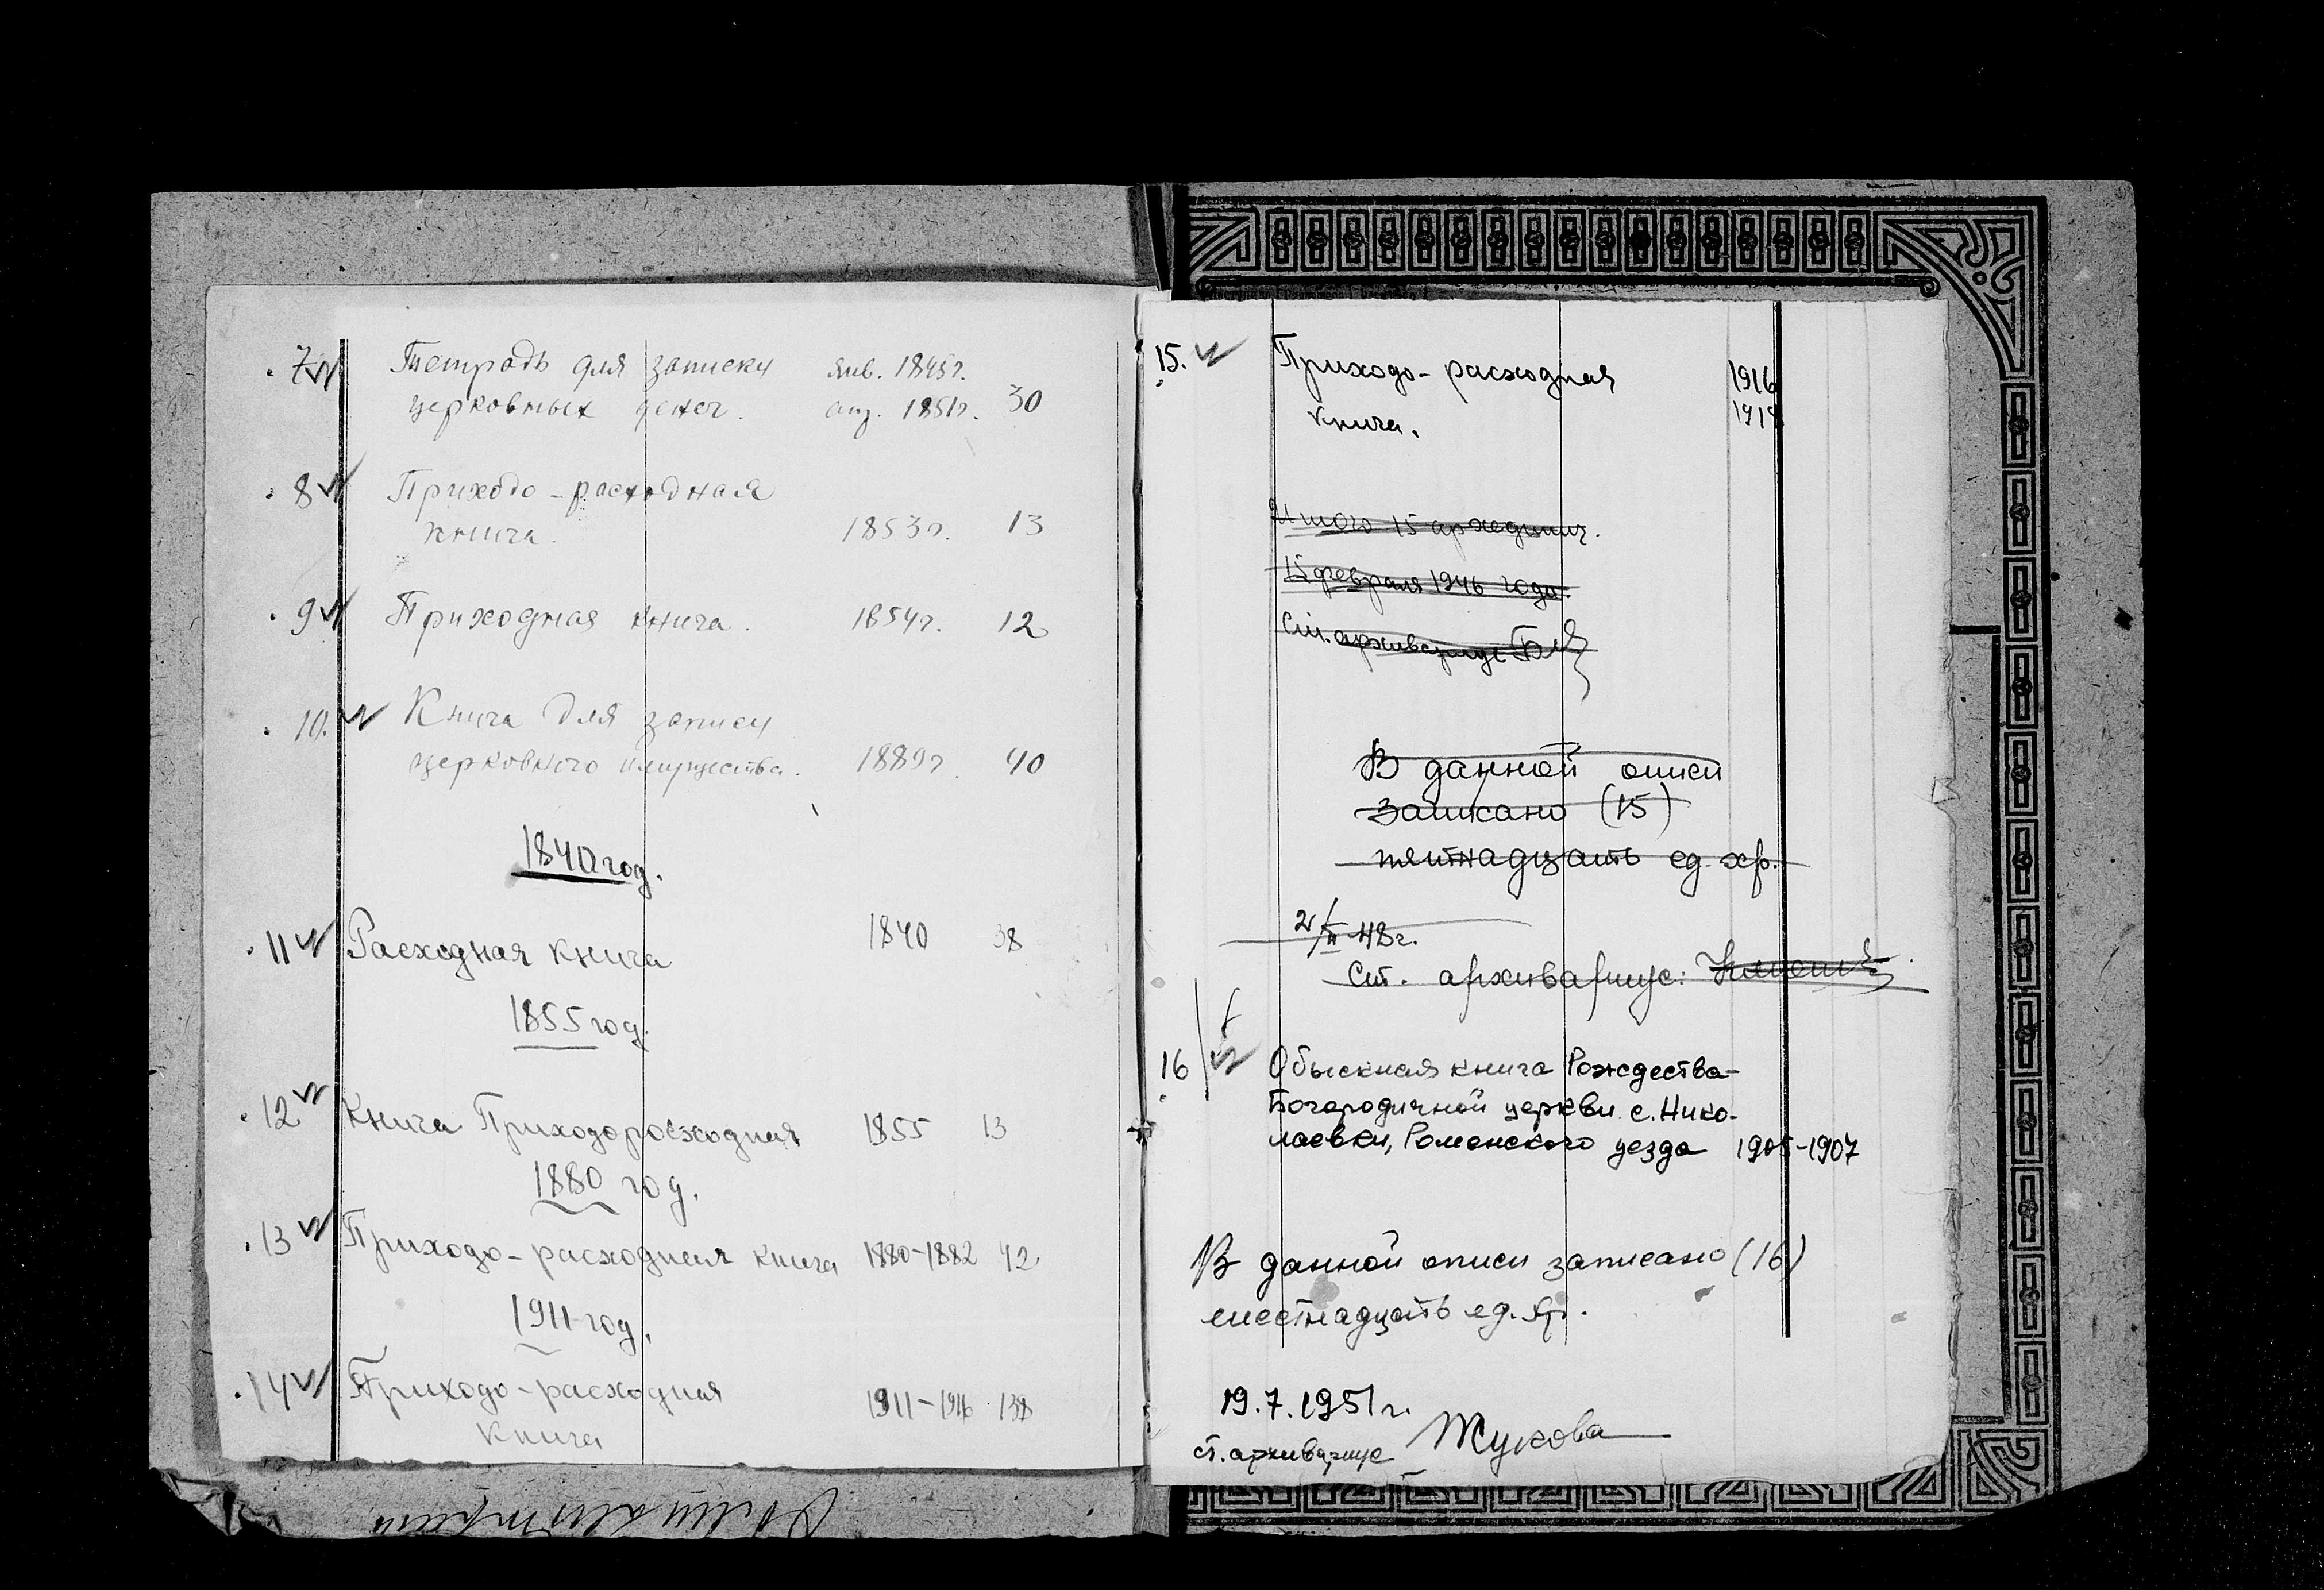 7. Тетрадь для записки янв. 1845г.
церковных денег. 1851г. 30
8 Приходо-расходная
книга. 1853г. 13
9 Приходная книга. 1854г. 12
10. Книга для записи
церковного имущества. 1889г. 40
1840 год.
11 Расходная книга 1840 38
1855 год.
12 Книга Приходорасходная 1855 13
1880 год.
13 Приходо-расходная книга 1880-1882 42
1911 год.
14 Приходо-расходная 1911-1916 138
книга
15. Приходо-расходная 1916
книга.
Итого 15 архедениц.
15 февраля 1946 года.
Ст. архивариус
В данной описи
записано (15)
пятнадцать ед. хр.
48г.
Ст. архивариус:
16 Обыскная книга Рождества-
Богородичной церкви с. Нико-
лаевки, Роменского уезда 1905-1907
В данной описи записано (16)
шестнадцать ед. хр.
19.7.1951г.
ст. архивариус Жукова